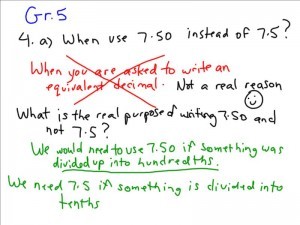 Gr.5
4. a) When use 7.50 instead of 7.5?
When you are asked to write an
equivalent decimal. Not a real reason
What is the real purpose of writing 7.50 and
not 7.5?
We would need to use 7.50 if something was
divided up into hundredths.
We need 7.5 if something is divided into
tenths